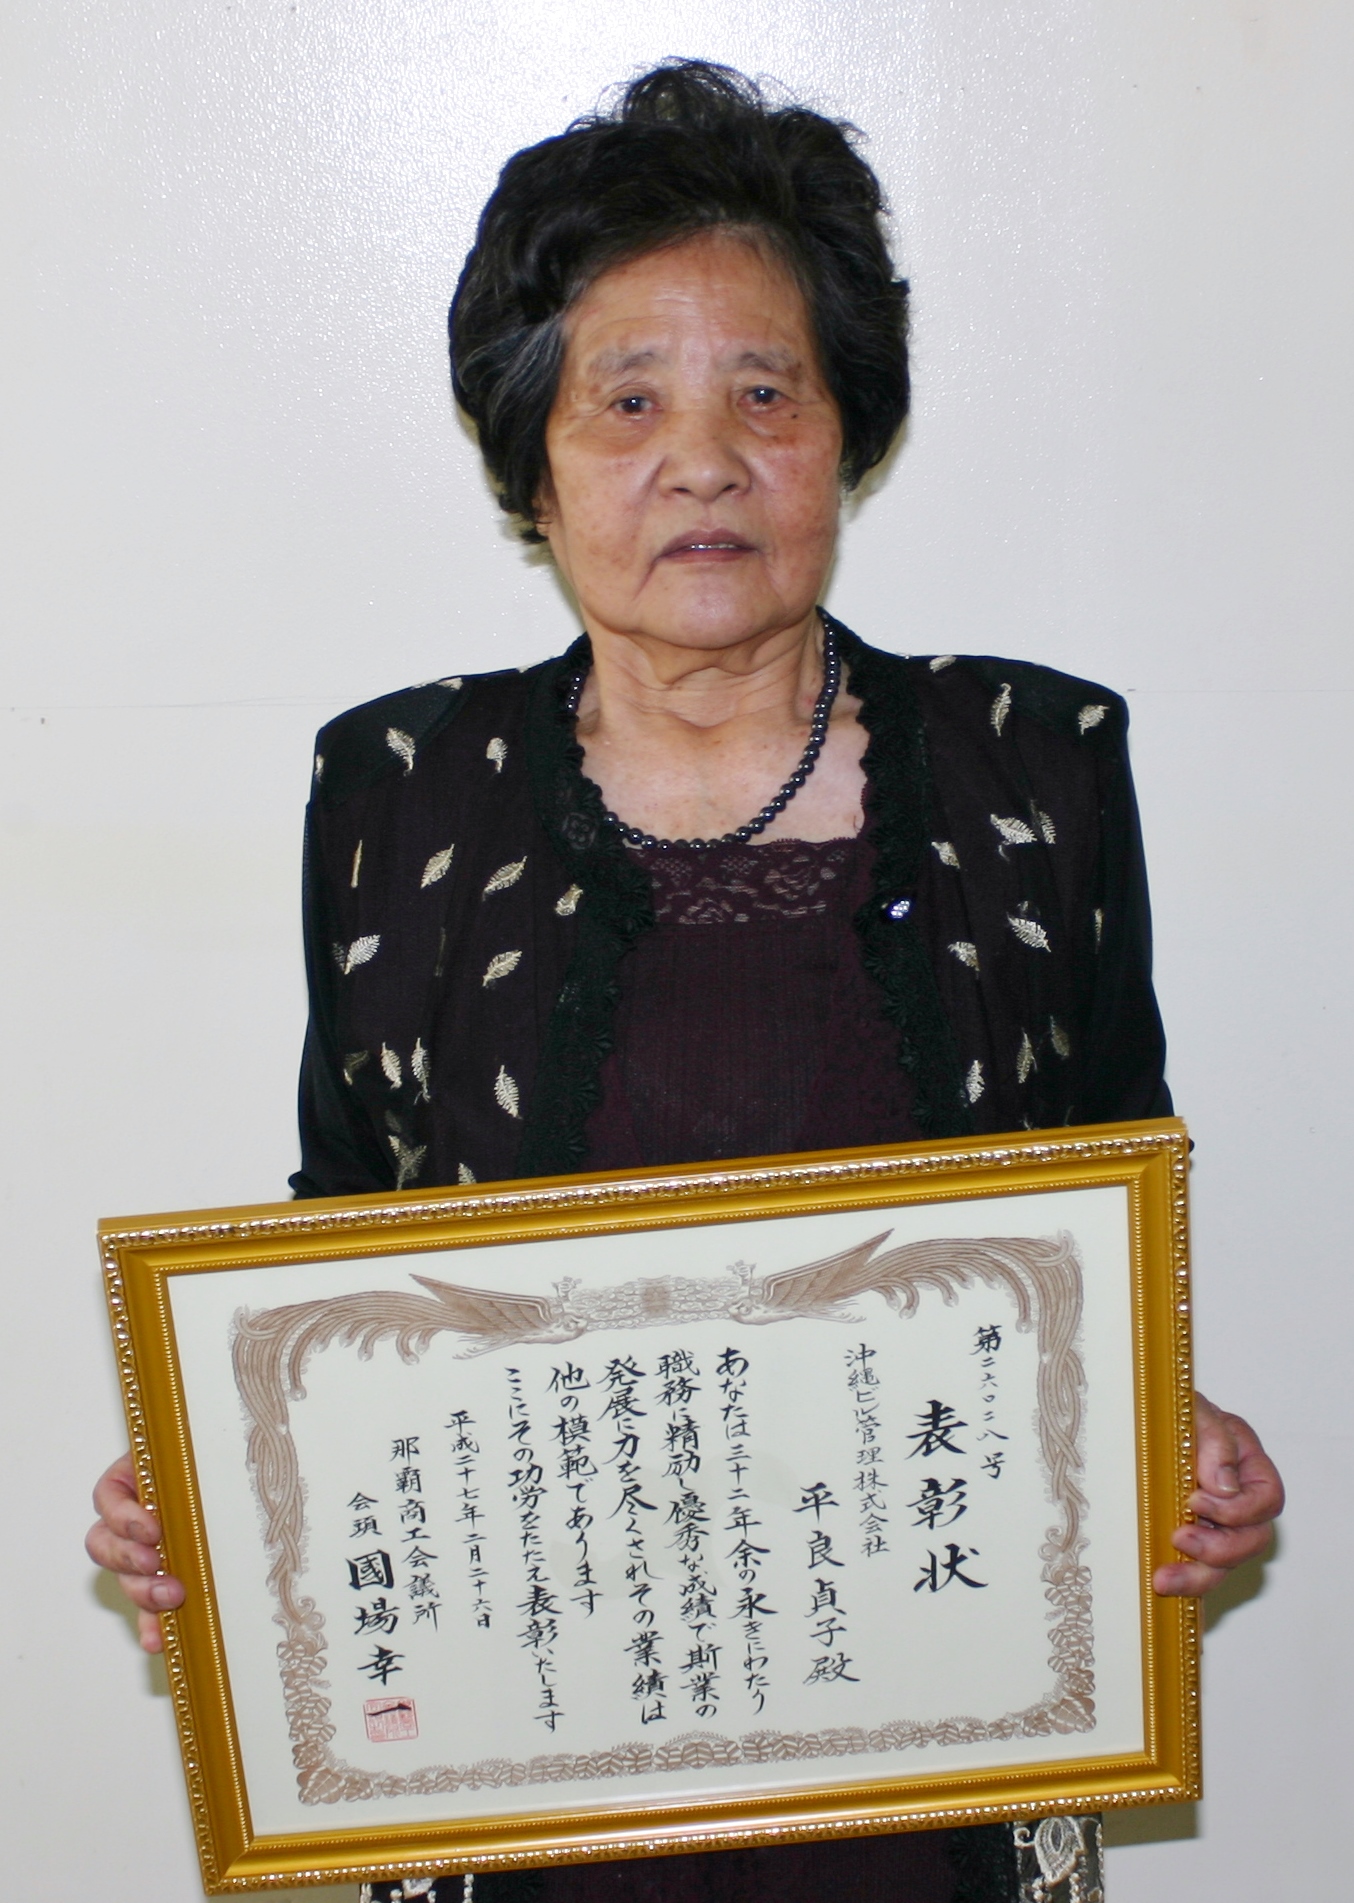 第二六〇二八号
表彰状
沖縄ビル管理株式会社
平良貞子殿
あなたは三十二年余の永きにわたり
職務に精励し優秀な成績で斯業の
発展に力を尽くされその業績は
他の模範であります
ここにその功労をたたえ表彰いたします
平成二十七年二月二十六日
那覇商工会議所
会頭 國場幸一